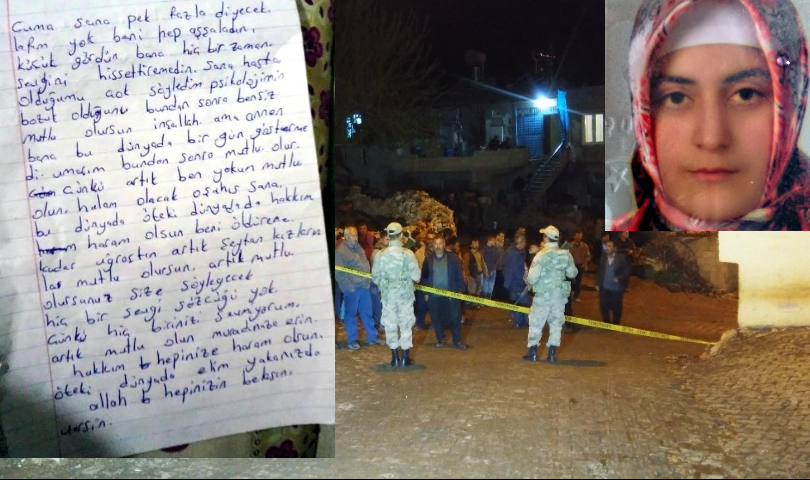 Cuma sana pek fazla diyecek.
lafım yok beni hep aşşaladın,
küçük gördün bana hiç bir zaman.
sevgini hissettiremedin. sana hasta
olduğumu çok söyledim psikolojimin
bozuk olduğunu bundan sonra bensiz
mutlu olursun inşallah ama annen
bana bu dünyada bir gün göstermedi
di. umarım bundan sonra mutlu olur.
Çünkü artık ben yokum mutlu
olun, halam olacak sana,
bu dünyada öteki dünyada hakkım
haram olsun beni öldürene.
kadar uğraştın artık şeytan kızların
lar mutlu olursun. artık mutlu
olursunuz size söyleyecek
hiç bir sevgi sözcüğü yok.
Çünkü hiç birinizi sevmiyorum.
artık mutlu olun muradınıza erin.
hakkım hepinize haram olsun.
öteki dünyada elim yakanızda
allah hepinizin belasını
versin.